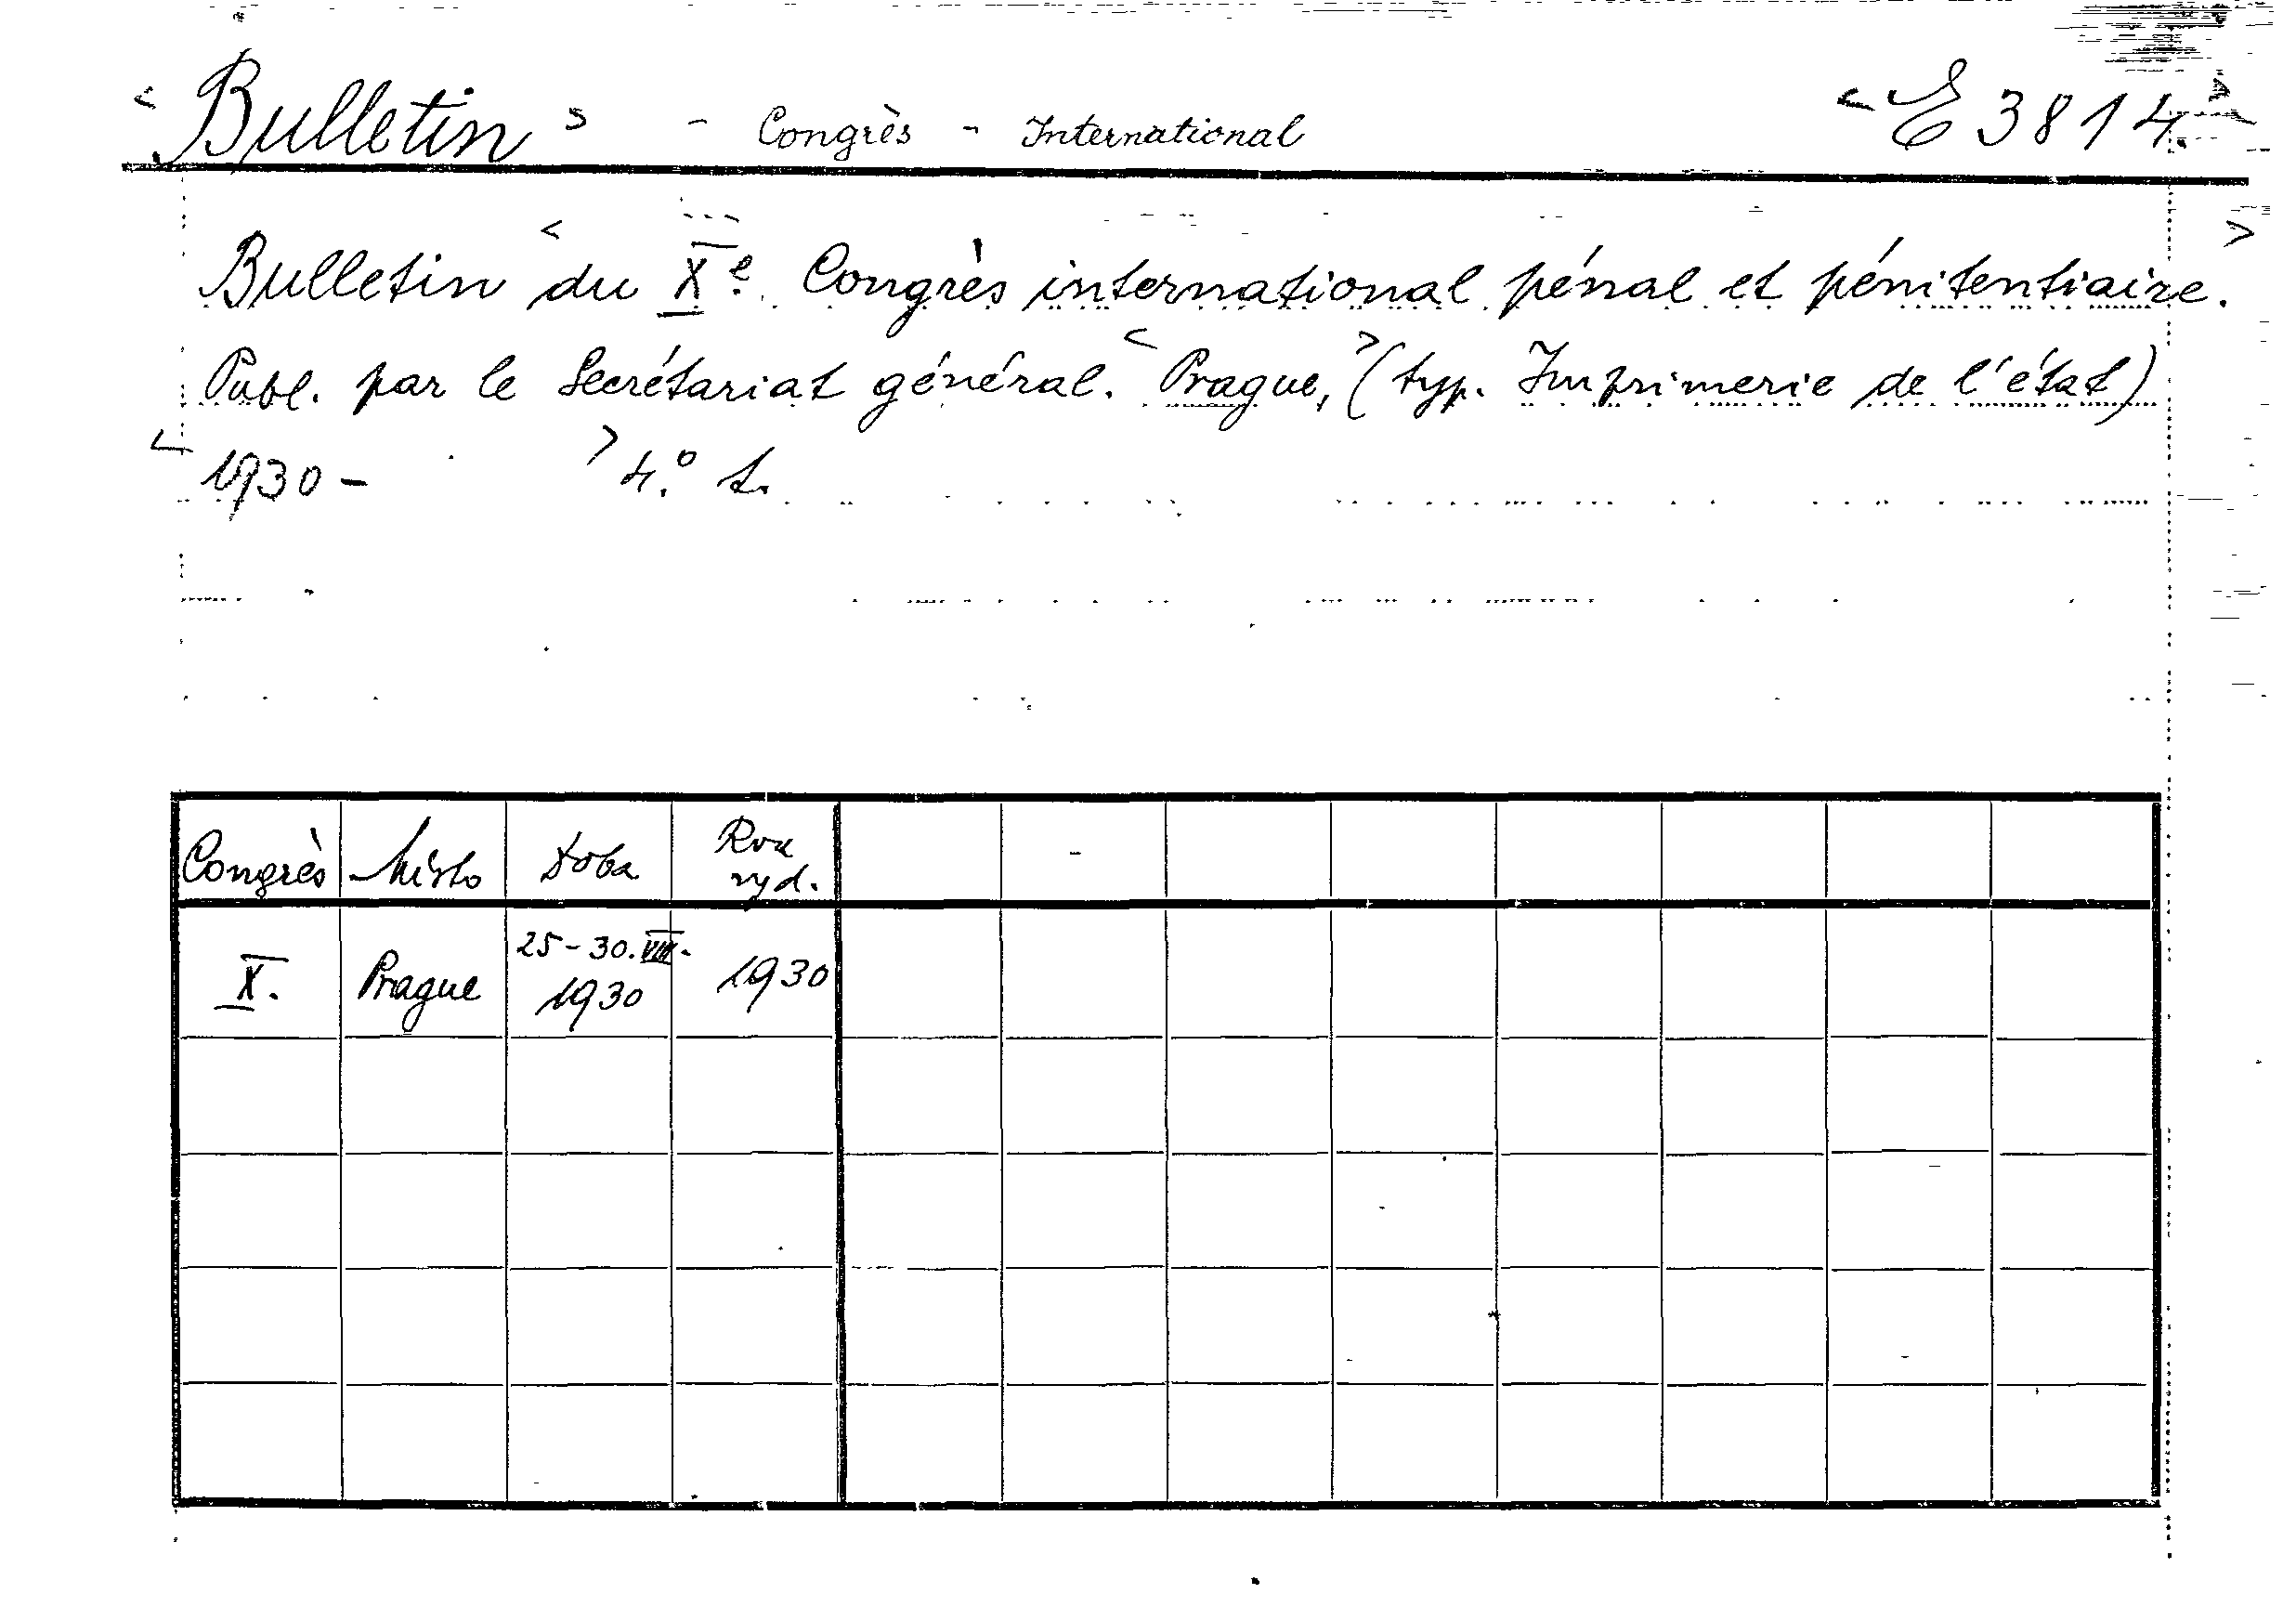 < Bulletin > - Congrès - International < E 3814 >
Bulletin < du Xe Congrès international pénal et pénitentiaire. >
Publ. par le Secrétariat général. < Prague, > (typ. Imprimerie de l'état)
< 1930 - > 4.° t.
Congrès Místo Doba Rok vyd.
X. Prague 25-30.VIII. 1930 1930